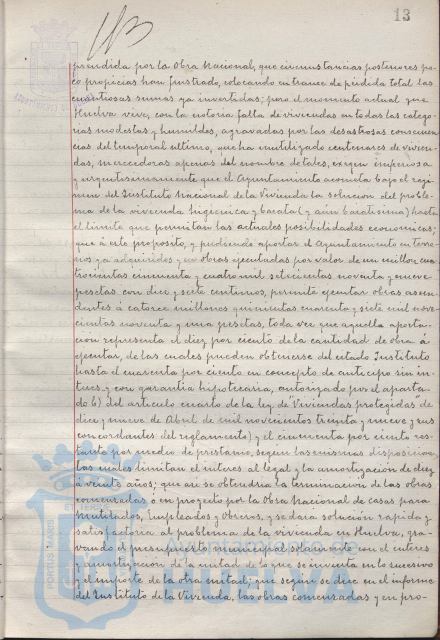 13
prendida por la Obra Nacional, que circunstancias posteriores po-
co propicias han frustrado, colocando en trance de pérdida total las
cuantiosas sumas ya invertidas; pero el momento actual que
Huelva vive, con la notoria falta de viviendas en todas las catego-
rias modestas y humildes, agravadas por las desastrosas consecuen-
cias del temporal último, que ha inutilizado centenares de vivien-
das, merecedoras apenas del nombre de tales, exigen imperiosa
y urgentísimamente que el Ayuntamiento acometa bajo el regi-
men del Instituto Nacional de la Vivienda la solucion del proble-
ma de la vivienda higienica y barata (y aun baratisima) hasta
el limite que permitan las actuales posibilidades economicas;
que á este proposito, y pudiendo aportar el Ayuntamiento en terre-
nos ya adquiridos y en obras ejecutadas por valor de un millon cua-
trocientas cincuenta y cuatro mil setecientas noventa y nueve
pesetas con diez y siete centimos, permite ejecutar obras ascen-
dentes á catorce millones quinientas cuarenta y siete mil nove-
cientas noventa y una pesetas, toda vez que aquella aporta-
cion representa el diez por ciento de la cantidad de obra á
ejecutar, de las cuales pueden obtenerse del citado Instituto
hasta el cuarenta por ciento en concepto de anticipo sin in-
teres y con garantia hipotecaria, autorizado por el aparta-
do b) del articulo cuarto de la ley de "Viviendas protegidas" de
diez y nueve de Abril de mil novecientos treinta y nueve y sus
concordantes del reglamento) y el cincuenta por ciento res-
tante por medio de prestamo, segun las mismas disposiciones
las cuales limitan el interes al legal y la amortización de diez
á veinte años; que asi se obtendria la terminacion de las obras
comenzadas o en proyecto por la Obra Nacional de casas para
Mutilados, Empleados y Obreros, y se daria solución rapida y
satisfactoria al problema de la vivienda en Huelva, gra-
vando el presupuesto municipal solamente con el interes
y amortización de la mitad de lo que se invierta en lo sucesivo
y el importe de la otra mitad; que segun se dice en el informe
del Instituto de la Vivienda, las obras comenzadas y en pro-